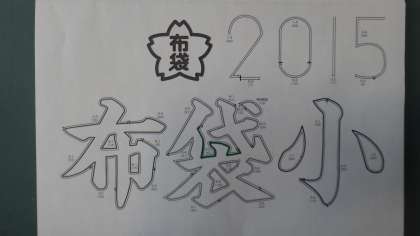 布袋 2015
布袋小